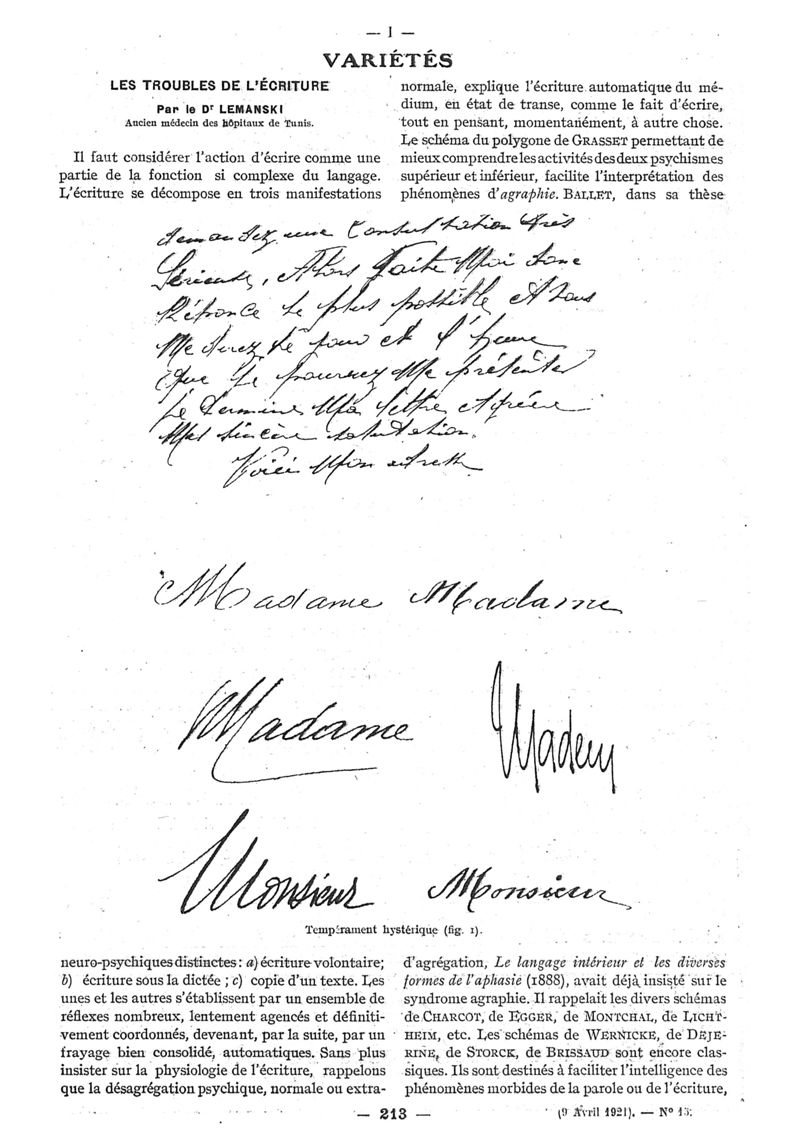 — I —
VARIÉTÉS
LES TROUBLES DE L'ÉCRITURE
Par le Dr LEMANSKI
Ancien médecin des hôpitaux de Tunis.
Il faut considérer l'action d'écrire comme une
partie de la fonction si complexe du langage.
L'écriture se décompose en trois manifestations
normale, explique l'écriture automatique du mé-
dium, en état de transe, comme le fait d'écrire,
tout en pensant, momentanément, à autre chose.
Le schéma du polygone de GRASSET permettant de
mieux comprendre les activités des deux psychismes
supérieur et inférieur, facilite l'interprétation des
phénomènes d'agraphie. BALLET, dans sa thèse
demandez une Consultation très
Sérieuse, Alors Faite Moi donc
Réponce le plus possible et Vous
Me direz le jour et l'heure
que je pourrez Me présenter
Je Termine Ma lettre
Mes sincère salutation.
Voici Mon
Madame Madame
Madame
Monsieur Monsieur
Tempérament hystérique (fig. 1).
neuro-psychiques distinctes : a) écriture volontaire;
b) écriture sous la dictée ; c) copie d'un texte. Les
unes et les autres s'établissent par un ensemble de
réflexes nombreux, lentement agencés et définiti-
vement coordonnés, devenant, par la suite, par un
frayage bien consolidé, automatiques. Sans plus
insister sur la physiologie de l'écriture, rappelons
que la désagrégation psychique, normale ou extra-
d'agrégation, Le langage intérieur et les diverses
formes de l'aphasie (1888), avait déjà insisté sur le
syndrome agraphie. Il rappelait les divers schémas
de CHARCOT, de EGGER, de MONTCHAL, de LICHT-
HEIM, etc. Les schémas de WERNICKE, de DEJE-
RINE, de STORCK, de BRISSAUD sont encore clas-
siques. Ils sont destinés à faciliter l'intelligence des
phénomènes morbides de la parole ou de l'écriture,
— 213 —
(9 Avril 1921). — N° 15.